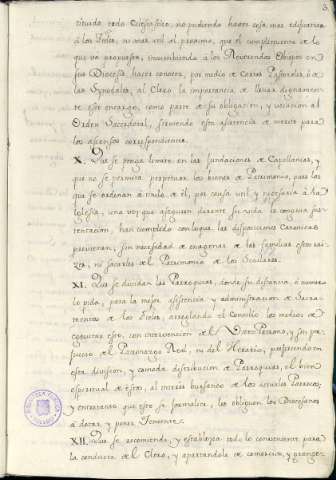 tituido todo Eclesiastico, no pudiendo hacer cosa mas edificativa
á los Fieles, ni mas util al proximo, que el cumplimiento de lo
que va propuesto, incumbiendo á los Reverendos Obispos en
sus Diocesis, hacer conocer, por medio de Cartas Pastorales, ó de
las Synodales, al Clero la importancia de llenar dignamen-
te este encargo, como parte de su obligacion, y vocacion al
Orden Sacerdotal, sirviendo esta asistencia de merito para
los ascensos correspondientes.
X. Que se ponga limite en las fundaciones de Capellanias, y
que no se permita perpetuar los bienes de Patrimonio, pues los
que se ordenan á titulo de él, por causa util y necesaria á la
Iglesia, una vez que aseguren durante su vida la congrua sus-
tentacion, han cumplido con lo que las disposiciones Canonicas
previenen, sin necesidad de enagenar de las familias esta rai-
z, ni sacarlos del Patrimonio de los Seculares.
XI. Que se dividan las Parroquias, donde su distancia, ó numero
lo pida, para la mejor asistencia y administracion de Sacra-
mentos de los Fieles, arreglando el Consejo los medios de
executar esto, con intervencion de el Vice-Patrono, y sin per-
juicio del Patronazgo Real, ni del Herario, prefiriendo en
esta division, y comoda distribucion de Parroquias, el bien
espiritual de estos, al interés bursatico de los actuales Parrocos,
y entretanto que esto se formalice, los obliguen los Diocesanos
á dotar, y poner Tenientes.
XII. Que se recomiende, y establezca todo lo conveniente para
la conducta de el Clero, y apartandola de comercios, y granger-